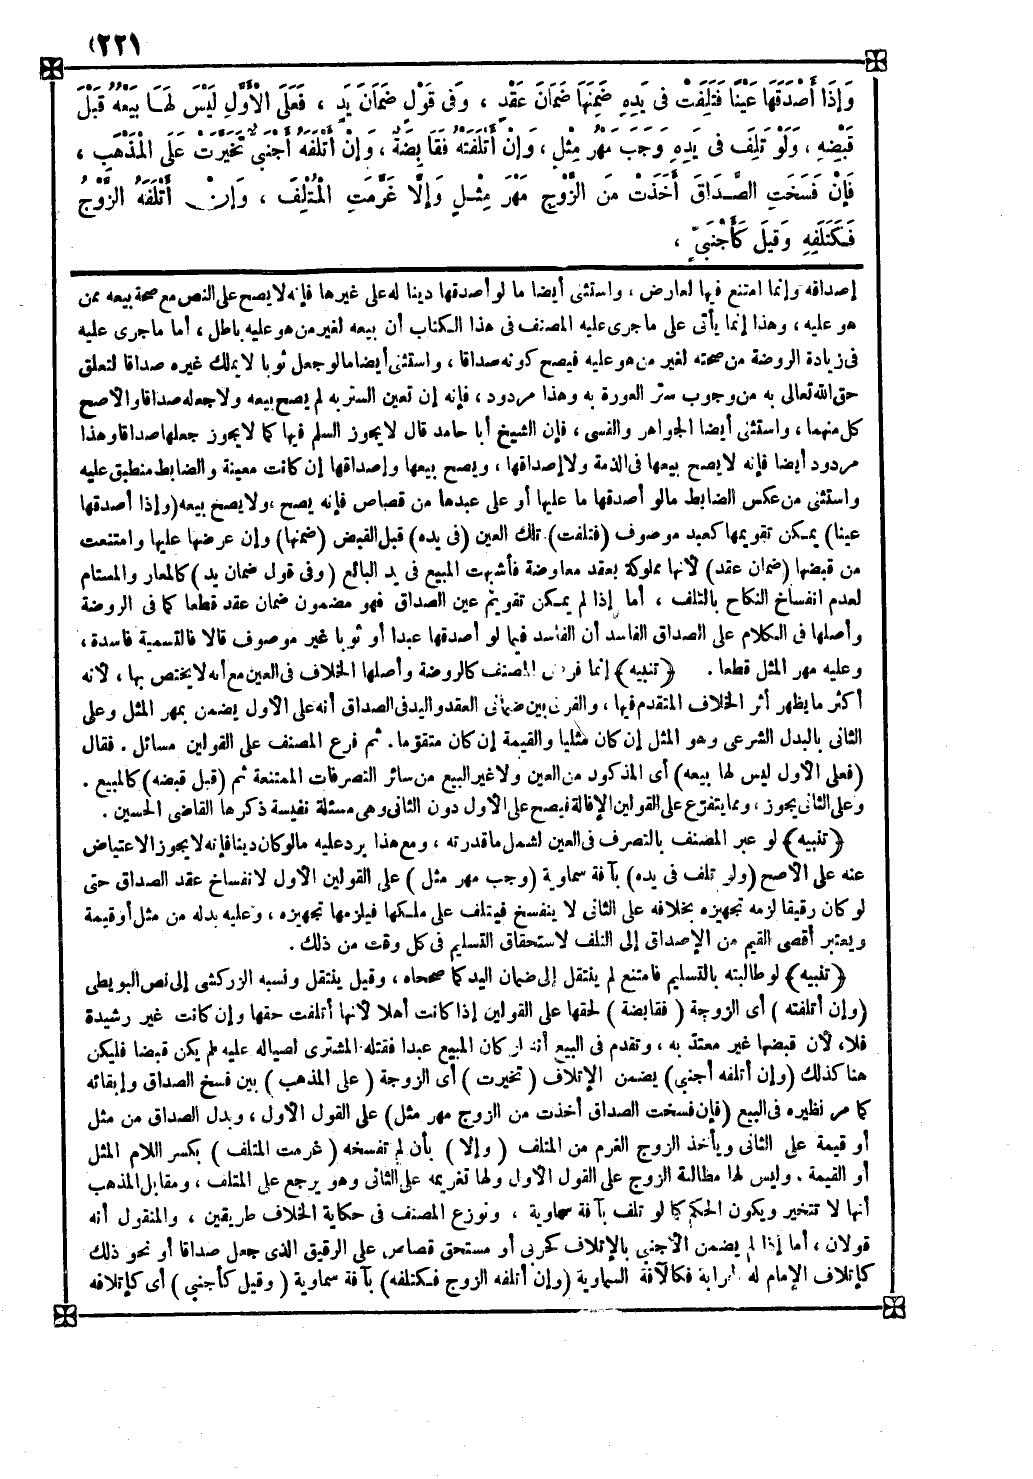 (٢٢١
وَإِذَا أَصْدَقَهَا عَيْنًا فَتَلِفَتْ فِى يَدِهِ ضَمِنَهَا ضَمَانَ عَقْدٍ ، وَفِى قَوْلٍ ضَمَانَ يَدٍ ، فَعَلَى الْأَوَّلِ لَيْسَ لَهَا بَيْعُهُ قَبْلَ
قَبْضِهِ ، وَلَوْ تَلِفَ فِى يَدِهِ وَجَبَ مَهْرُ مِثْلٍ ، وَإِنْ أَتْلَفَتْهُ فَقَابِضَةٌ ، وَإِنْ أَتْلَفَهُ أَجْنَبِىٌّ تَخَيَّرَتْ عَلَى الْمَذْهَبِ ،
فَإِنْ فَسَخَتِ الصَّدَاقَ أَخَذَتْ مِنَ الزَّوْجِ مَهْرَ مِثْلٍ وَإِلَّا غَرَّمَتِ الْمُتْلِفَ ، وَإِنْ أَتْلَفَهُ الزَّوْجُ
فَكَتَلَفِهِ وَقِيلَ كَأَجْنَبِىٍّ ،
إصداقه وإنما امتنع فيها لعارض ، واستثنى أيضا ما لو أصدقها دينا له على غيرها فإنه لا يصح على النص مع صحة بيعه ممن
هو عليه ، وهذا إنما يأتى على ما جرى عليه المصنف فى هذا الكتاب أن بيعه لغير من هو عليه باطل ، أما ما جرى عليه
فى زيادة الروضة من صحته لغير من هو عليه فيصح كونه صداقا ، واستثنى أيضا ما لو جعل ثوبا لا يملك غيره صداقا لتعلق
حق الله تعالى به من وجوب ستر العورة به وهذا مردود ، فإنه إن تعين الستر به لم يصح بيعه ولا جعله صداقا وإلا صح
كل منهما ، واستثنى أيضا الجواهر والقسى ، فإن الشيخ أبا حامد قال لا يجوز السلم فيها كما لا يجوز جعلها صداقا وهذا
مردود أيضا فإنه لا يصح بيعها فى الذمة ولا إصداقها ، ويصح بيعها وإصداقها إن كانت معينة والضابط منطبق عليه
واستثنى من عكس الضابط ما لو أصدقها ما عليها أو على عبدها من قصاص فإنه يصح ، ولا يصح بيعه (وإذا أصدقها
عينا) يمكن تقويمها كعبد موصوف (فتلفت) تلك العين (فى يده) قبل القبض (ضمنها) وإن عرضها عليها وامتنعت
من قبضها (ضمان عقد) لأنها مملوكة بعقد معاوضة فأشبهت المبيع فى يد البائع (وفى قول ضمان يد) كالمعار والمستام
لعدم انفساخ النكاح بالتلف ، أما إذا لم يمكن تقويم عين الصداق فهو مضمون ضمان عقد قطعا كما فى الروضة
وأصلها فى الكلام على الصداق الفاسد أن الفاسد فيما لو أصدقها عبدا أو ثوبا غير موصوف قالا فالتسمية فاسدة ،
وعليه مهر المثل قطعا . ﴿تنبيه﴾ إنما فرض المصنف كالروضة وأصلها الخلاف فى العين مع أنه لا يختص بها ، لأنه
أكثر ما يظهر أثر الخلاف المتقدم فيها ، والفرق بين ضمانى العقد واليد فى الصداق أنه على الأول يضمن بمهر المثل وعلى
الثانى بالبدل الشرعى وهو المثل إن كان مثليا والقيمة إن كان متقوّما . ثم فرع المصنف على القولين مسائل . فقال
(فعلى الأول ليس لها بيعه) أى المذكور من العين ولا غير البيع من سائر التصرفات الممتنعة ثم (قبل قبضه) كالمبيع .
وعلى الثانى يجوز ، ومما يتفرّع على القولين الإقالة فيصح على الأول دون الثانى وهى مسئلة نفيسة ذكرها القاضى الحسين .
﴿تنبيه﴾ لو عبر المصنف بالتصرف فى العين لشمل ما قدرته ، ومع هذا يرد عليه ما لو كان دينا فإنه لا يجوز الاعتياض
عنه على الأصح (ولو تلف فى يده) بآفة سماوية (وجب مهر مثل) على القولين الأول لانفساخ عقد الصداق حتى
لو كان رقيقا لزمه تجهيزه بخلافه على الثانى لا ينفسخ فيتلف على ملكها فيلزمها تجهيزه ، وعليه بدله من مثل أو قيمة
ويعتبر أقصى القيم من الإصداق إلى التلف لاستحقاق التسليم فى كل وقت من ذلك .
﴿تنبيه﴾ لو طالبته بالتسليم فامتنع لم ينتقل إلى ضمان اليد كما صححاه ، وقيل ينتقل ونسبه الزركشى إلى نص البويطى
(وإن أتلفته) أى الزوجة (فقابضة) لحقها على القولين إذا كانت أهلا لأنها أتلفت حقها وإن كانت غير رشيدة
فلا، لأن قبضها غير معتدّ به ، وتقدم فى البيع أنه لو كان المبيع عبدا فقتله المشترى لصياله عليه لم يكن قبضا فليكن
هنا كذلك (وإن أتلفه أجنبى) يضمن الإتلاف (تخيرت) أى الزوجة (على المذهب) بين فسخ الصداق وإبقائه
كما مر نظيره فى البيع (فإن فسخت الصداق أخذت من الزوج مهر مثل) على القول الأول ، وبدل الصداق من مثل
أو قيمة على الثانى ويأخذ الزوج الغرم من المتلف (وإلا) بأن لم تفسخه (غرمت المتلف) بكسر اللام المثل
أو القيمة . وليس لها مطالبة الزوج على القول الأول ولها تغريمه على الثانى وهو يرجع على المتلف ، ومقابل المذهب
أنها لا تتخير ويكون الحكم كما لو تلف بآفة سماوية ، ونوزع المصنف فى حكاية الخلاف طريقين ، والمنقول أنه
قولان ، أما إذا لم يضمن الأجنبى بالإتلاف كحربى أو مستحق قصاص على الرقيق الذى جعل صداقا أو نحو ذلك
كإتلاف الإمام له لحرابة فكالآفة السماوية (وإن أتلفه الزوج فكتلفه) بآفة سماوية (وقيل كأجنبى) أى كإتلافه